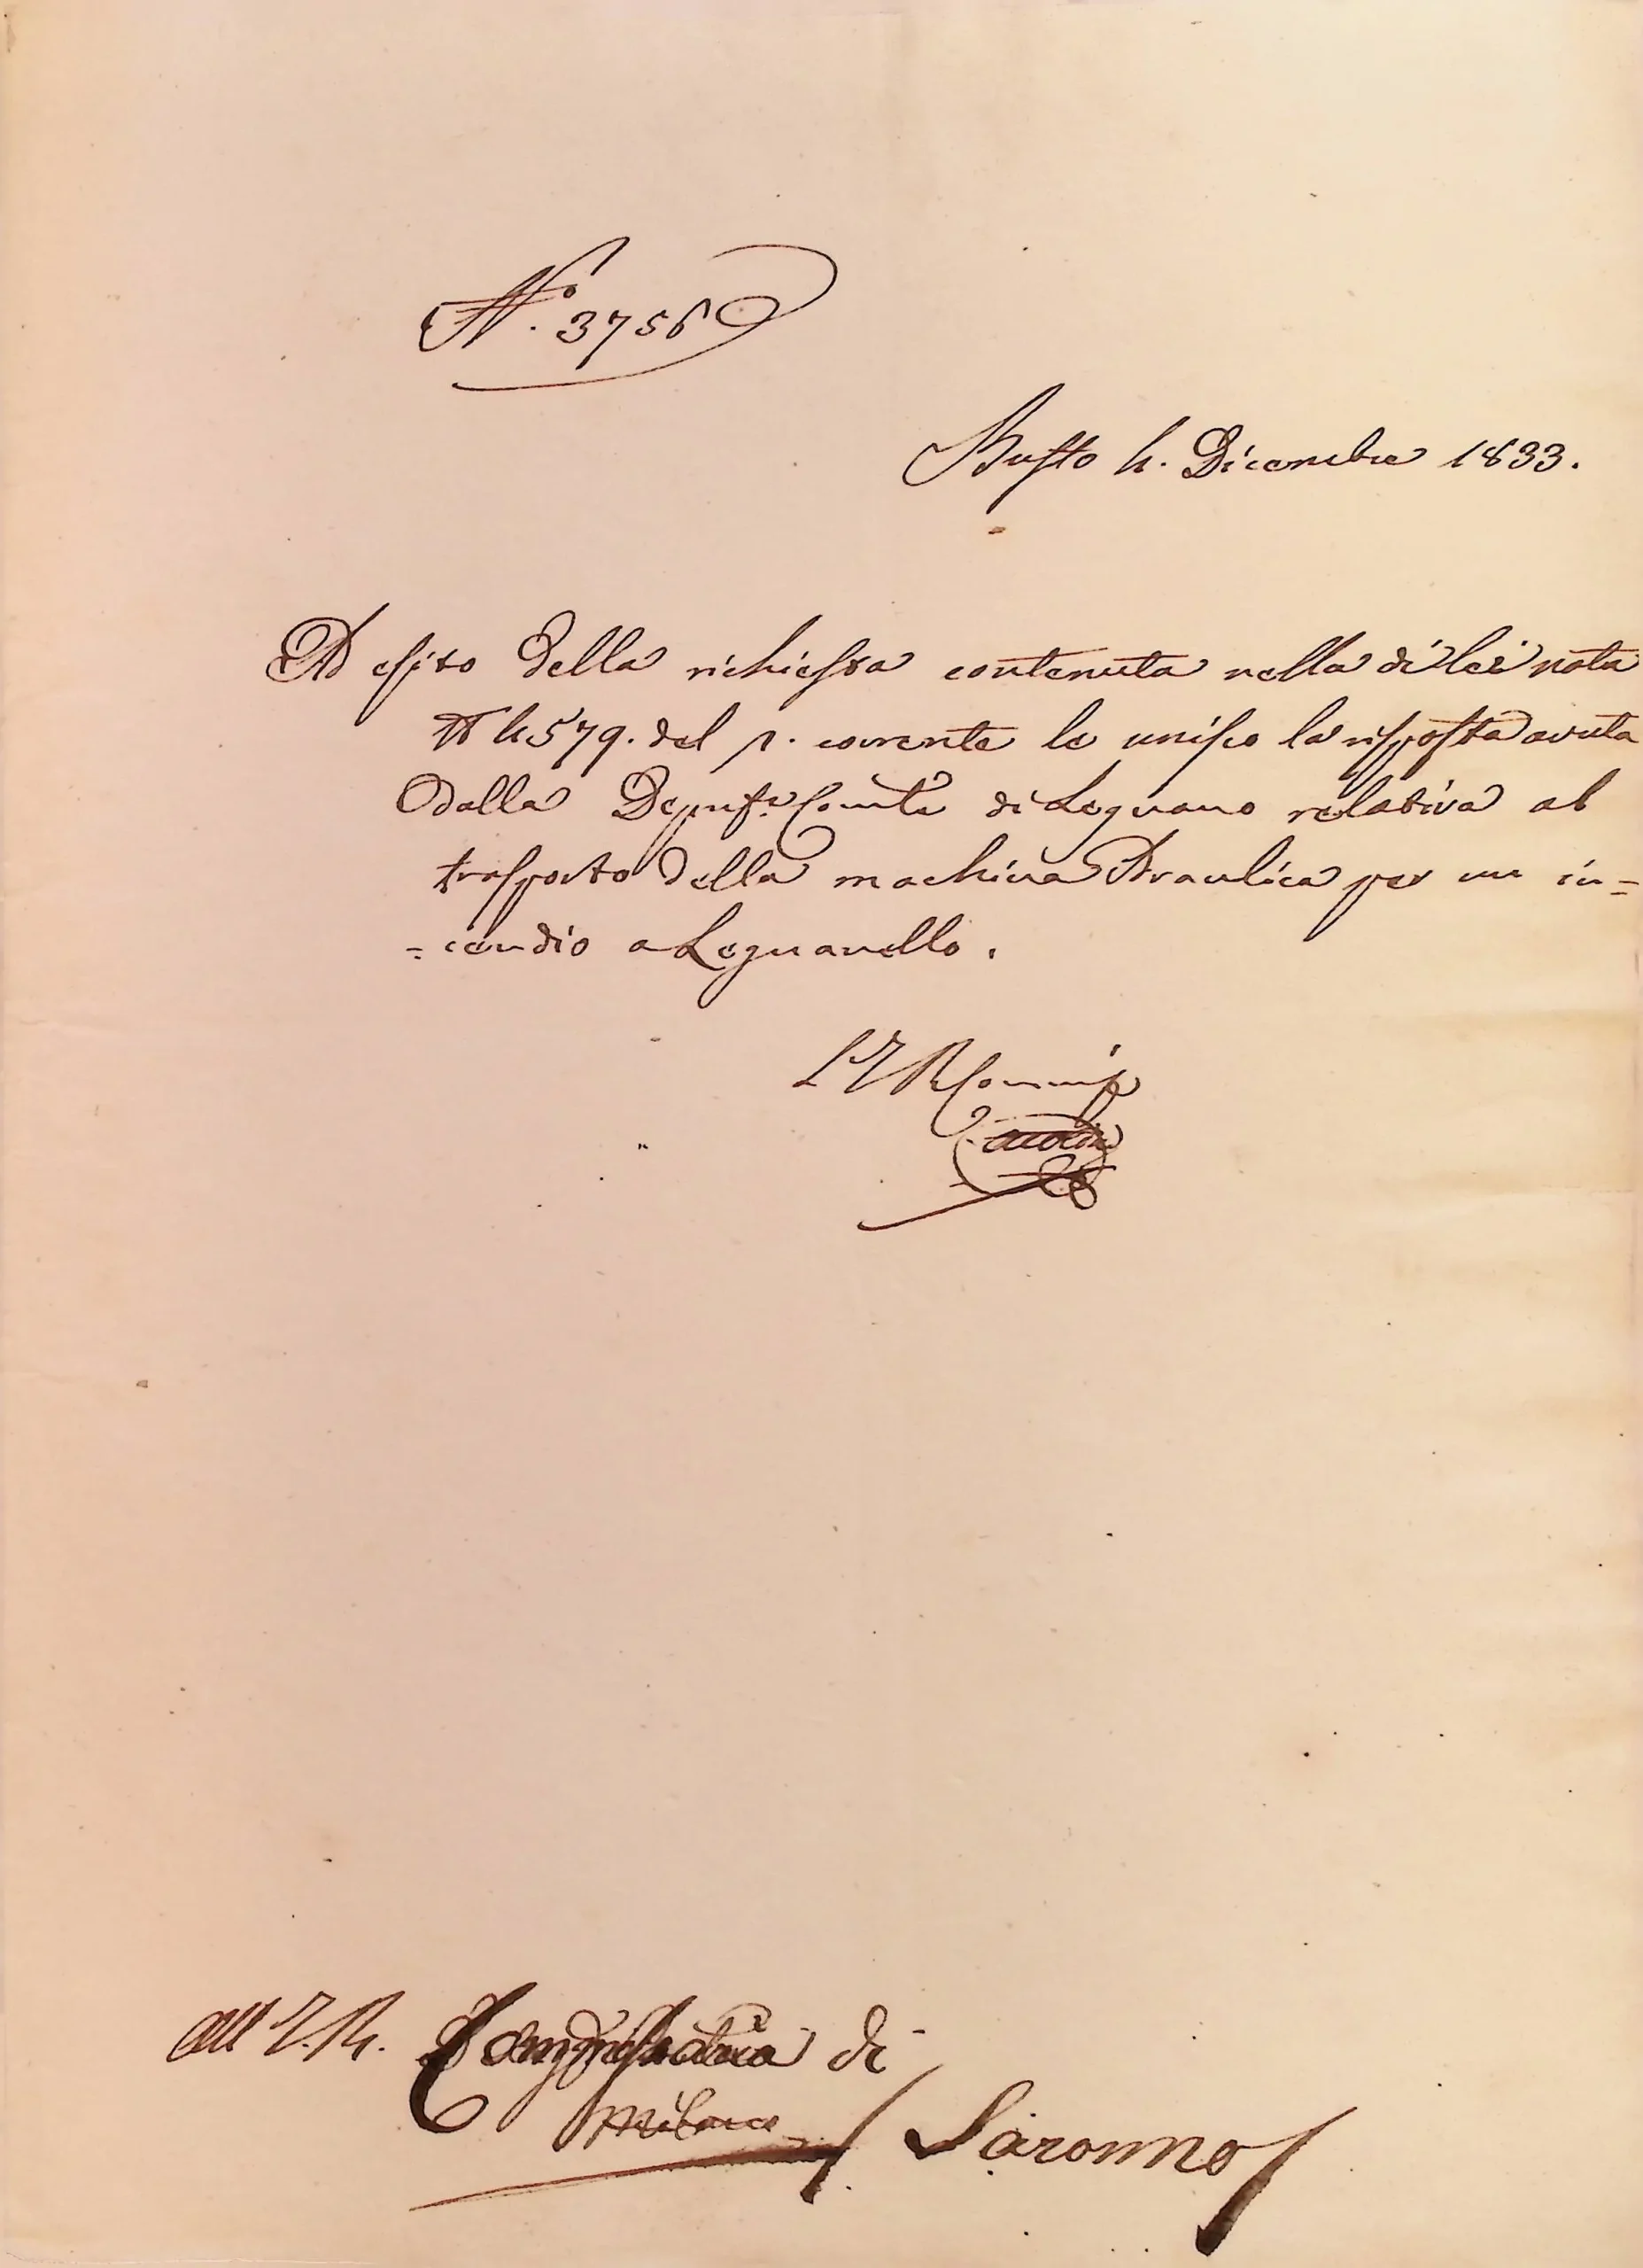 N.° 3756
Busto 4. Dicembre 1833.
Ad esito della richiesta contenuta nella di lei nota
N 4579. del p. corrente le unisco la risposta avuta
dalla Deput.e Com.le di Legnano relativa al
trasporto della machina Idraulica per un in=
=cendio a Legnanello.
L'I R Commis
all' I. R. di
Milano Saronno